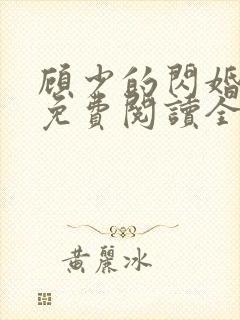 顾少的閃婚
免費閱讀全
黃麗冰